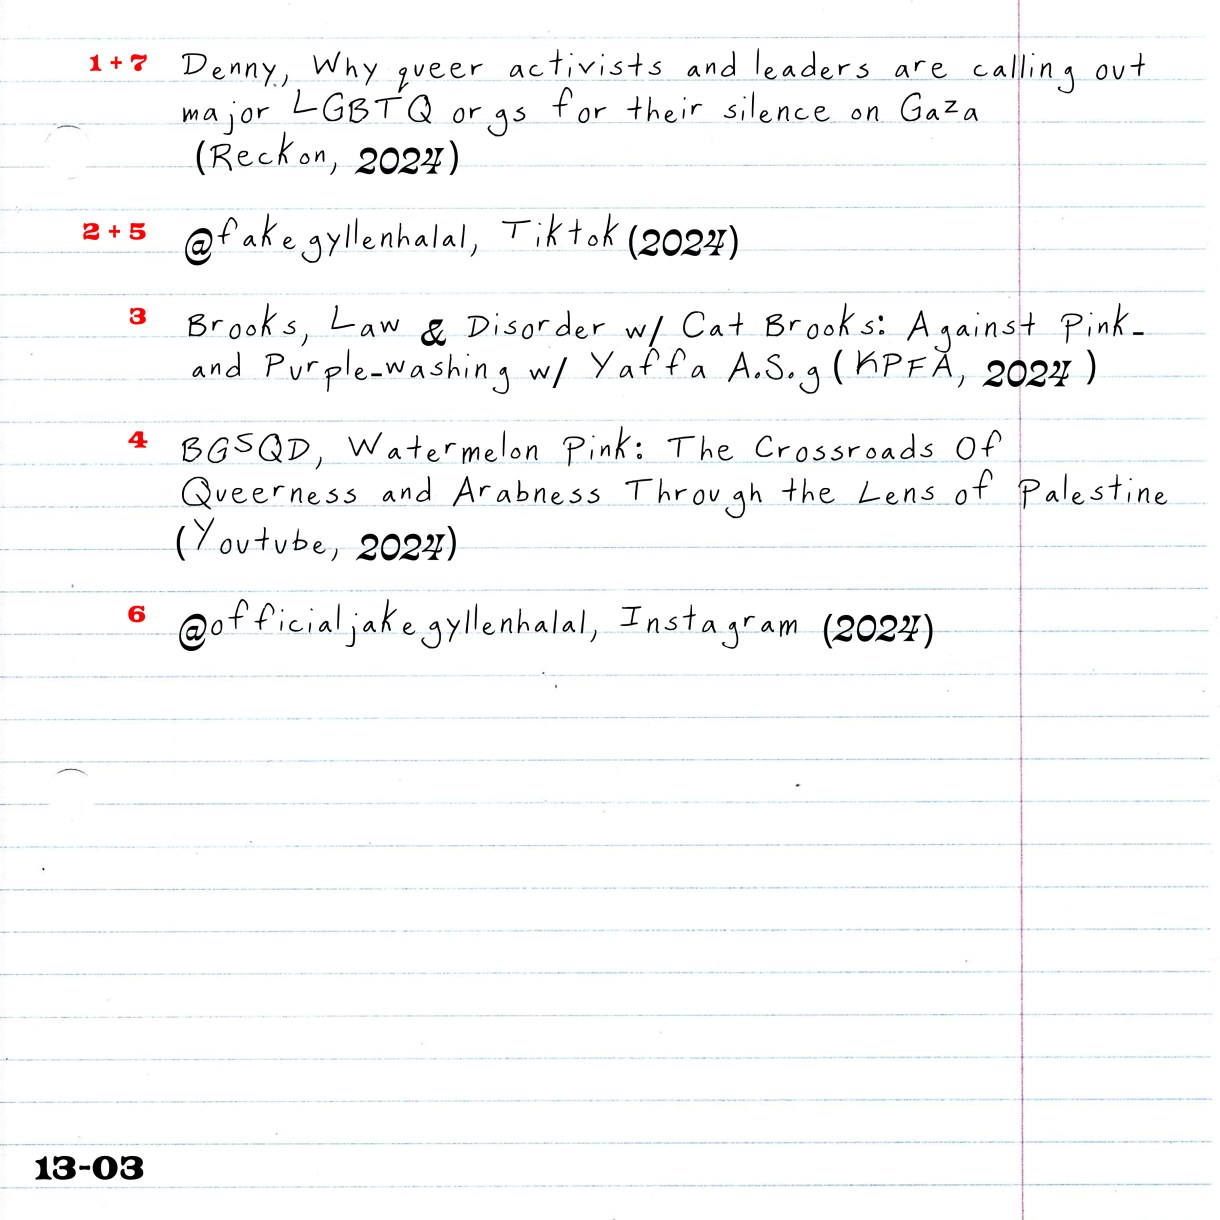 1 + 7 Denny, Why queer activists and leaders are calling out
major LGBTQ orgs for their silence on Gaza
(Reckon, 2024)
2 + 5 @fakegyllenhalal, Tiktok (2024)
3 Brooks, Law & Disorder w/ Cat Brooks: Against Pink-
and Purple-washing w/ Yaffa A.S.g (KPFA, 2024)
4 BGSQD, Watermelon Pink: The Crossroads Of
Queerness and Arabness Through the Lens of Palestine
(Youtube, 2024)
6 @officialjakegyllenhalal, Instagram (2024)
13-03